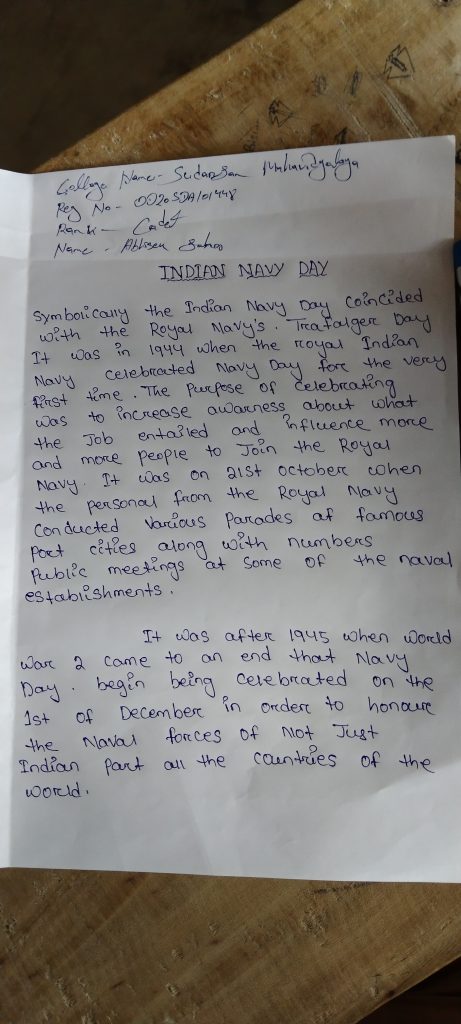 College Name - Sudarsan Mahavidyalaya
Reg No - OD20SDA101448
Rank - Cadet
Name - Abhisek Sahoo
INDIAN NAVY DAY
Symbolically the Indian Navy Day coincided
with the Royal Navy's. Trafalger Day
It was in 1944 when the royal Indian
Navy celebrated Navy Day fore the very
first time. The purpose of celebrating
was to increase awarness about what
the Job entailed and influence more
and more people to Join the Royal
Navy. It was on 21st october when
the personal from the Royal Navy
conducted various parades af famous
port cities along with numbers
Public meetings at some of the naval
establishments.
It was after 1945 when world
war 2 came to an end that Navy
Day. begin being celebrated on the
1st of December in order to honour
the Naval forces of Not Just
Indian part all the countries of the
world.